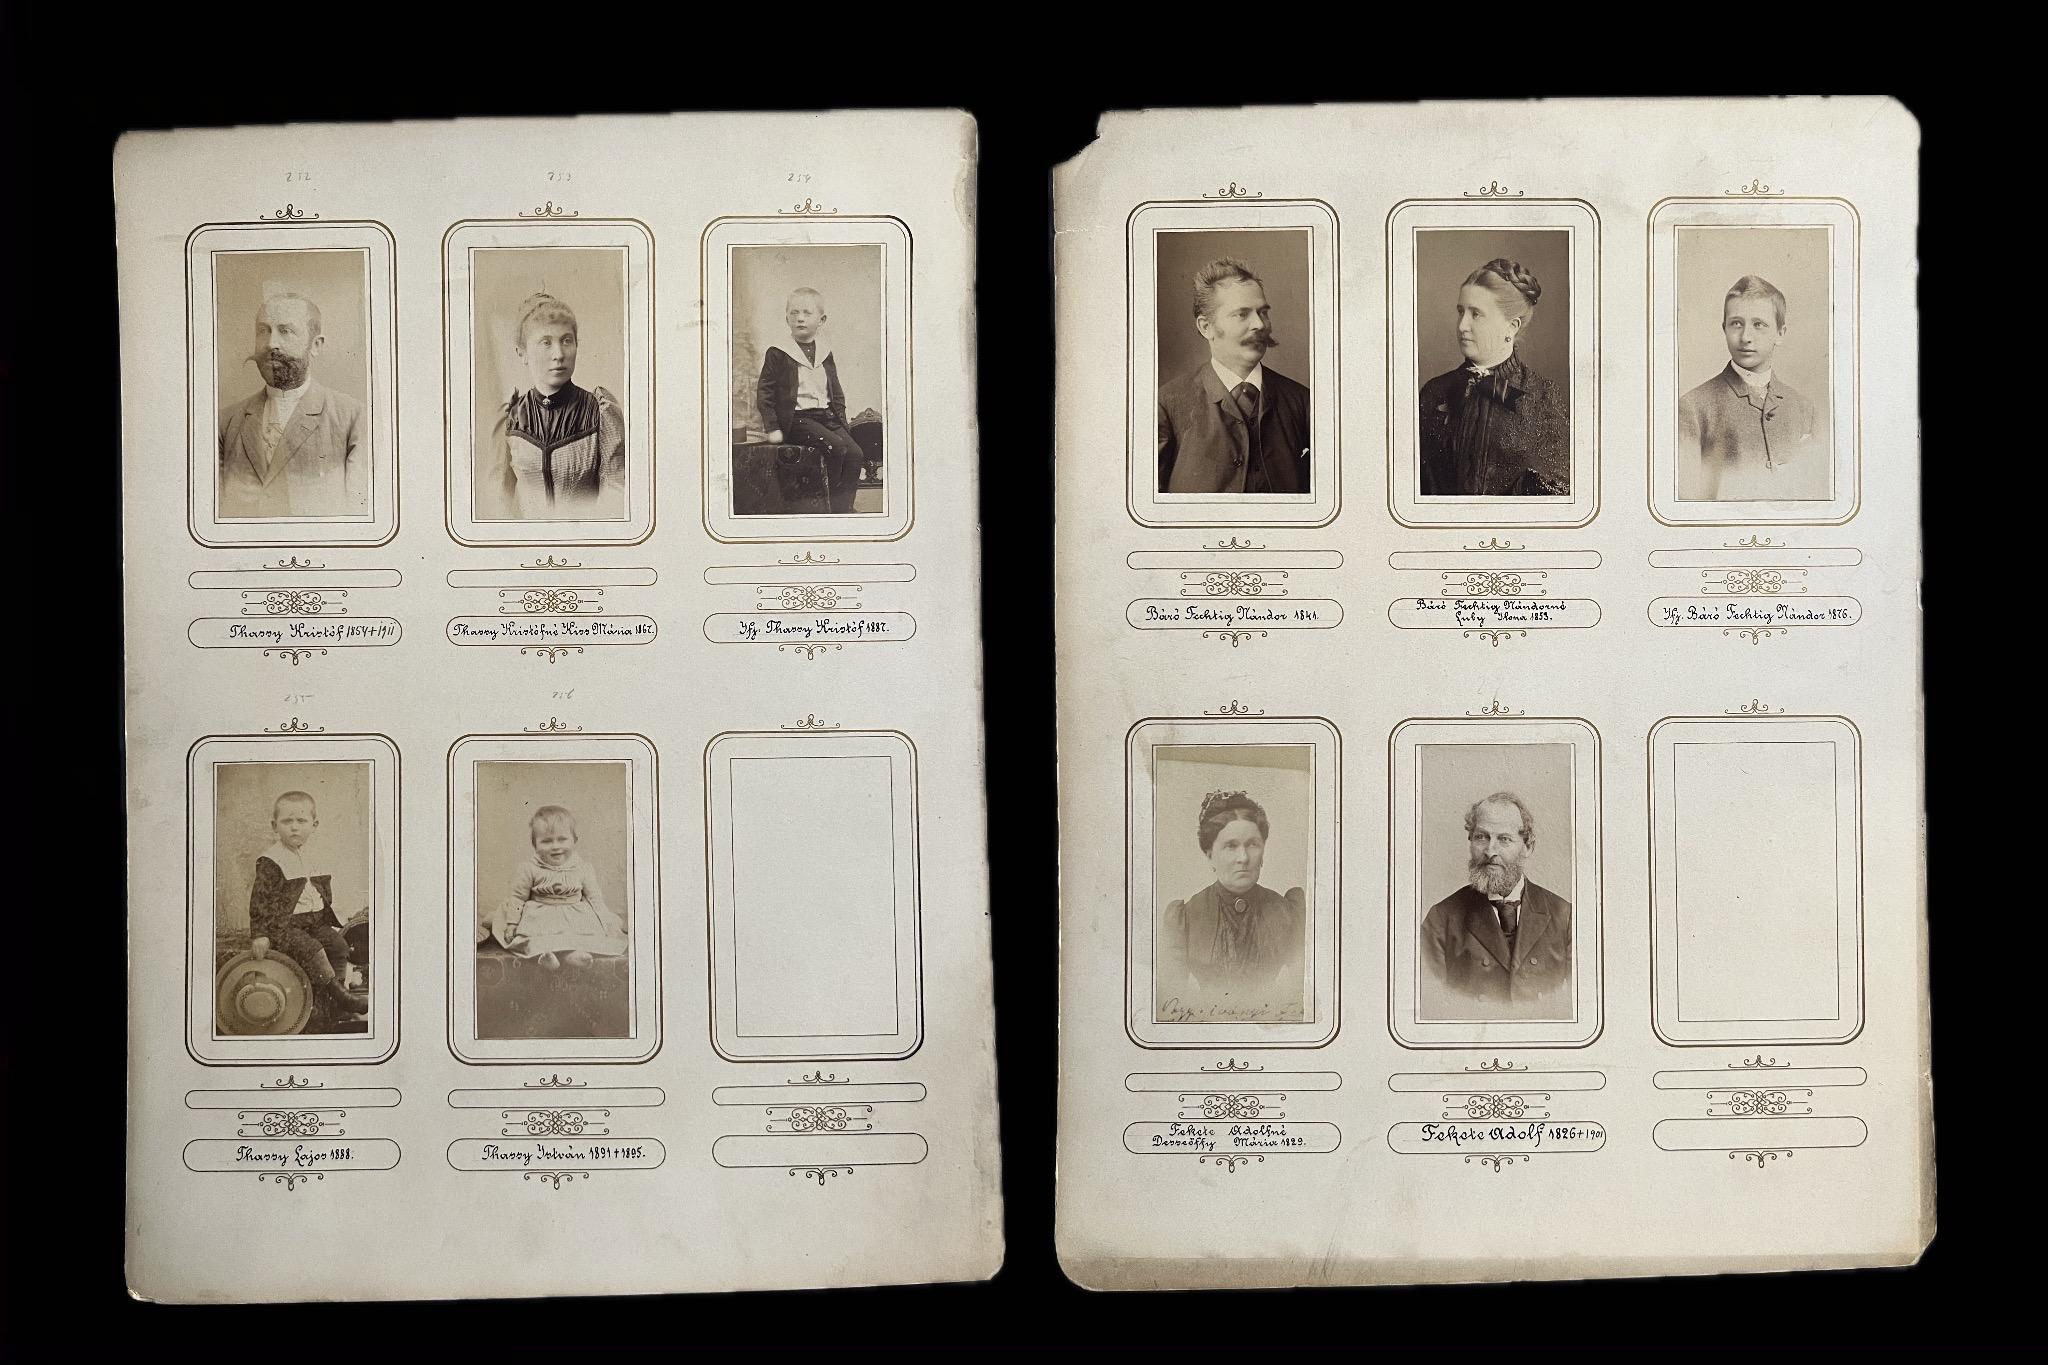 252 253 254
Thassy Kristóf 1854+1911
Thassy Kristófné Kiss Mária 1867.
Ifj. Thassy Kristóf 1887.
255 256
Thassy Lajos 1888.
Thassy István 1891+1895.
Báró Fechtig Nándor 1841.
Báró Fechtig Nándorné
Luby Ilona 1853.
Ifj. Báró Fechtig Nándor 1876.
Fekete Adolfné
Desseőffy Mária 1829.
Fekete Adolf 1826+1901